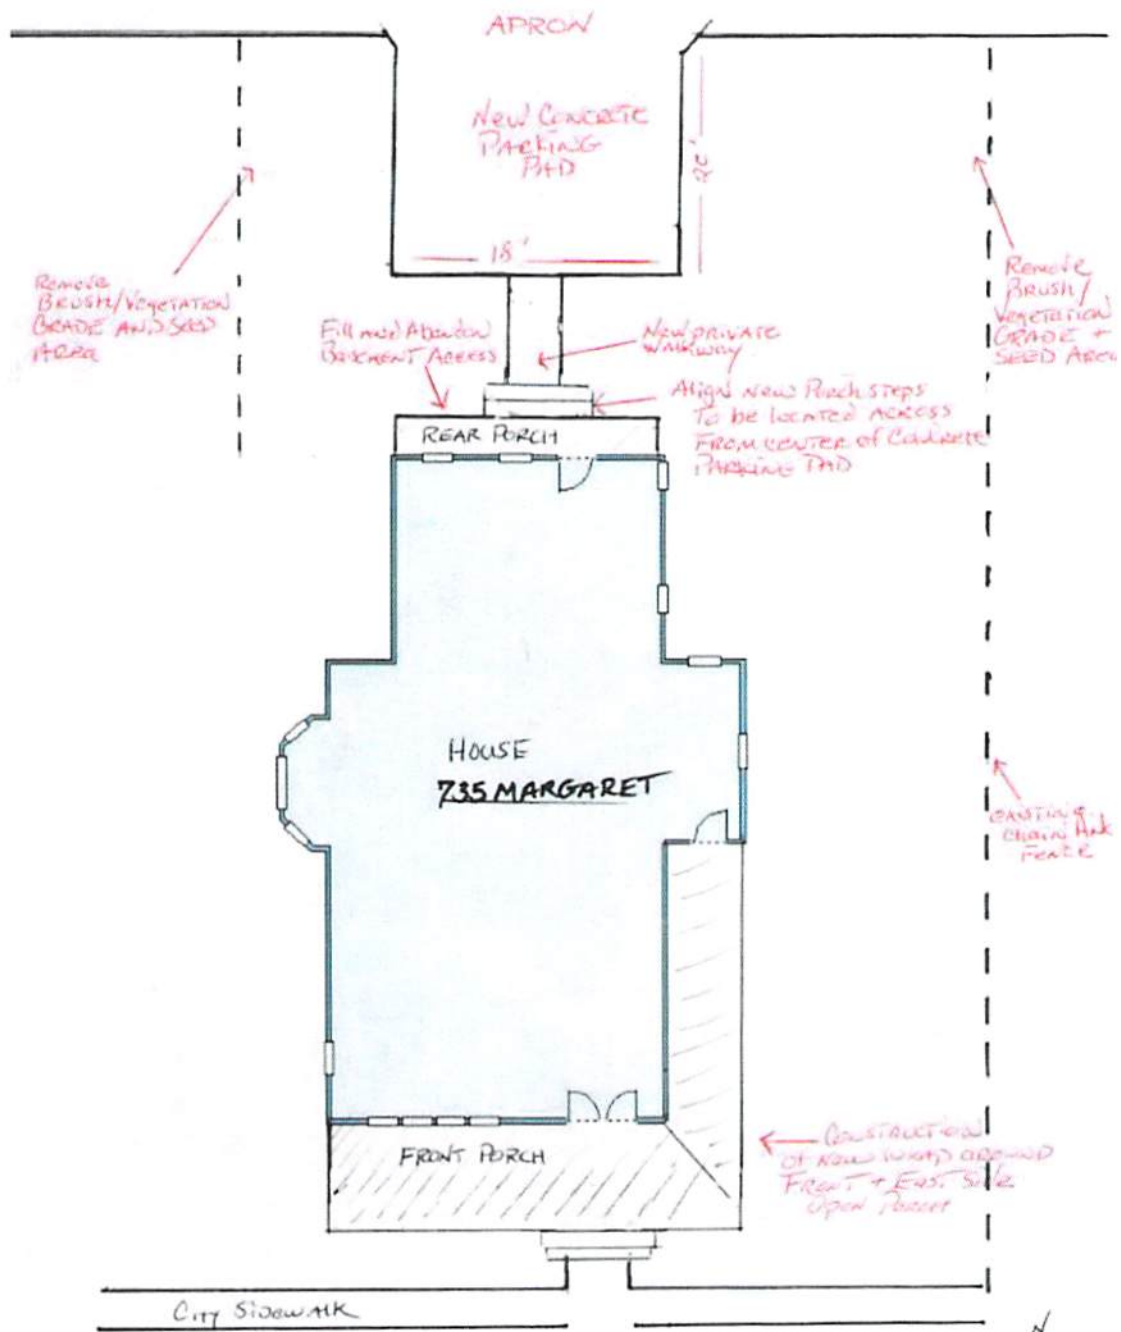 APRON
NEW CONCRETE
PARKING
PAD
20'
18'
REMOVE
BRUSH/VEGETATION
GRADE AND SEED
AREA
REMOVE
BRUSH/
VEGETATION
GRADE +
SEED AREA
FILL AND ABANDON
BASEMENT ACCESS
NEW PRIVATE
WALKWAY
ALIGN NEW PORCH STEPS
TO BE LOCATED ACROSS
FROM CENTER OF CONCRETE
PARKING PAD
REAR PORCH
HOUSE
735 MARGARET
EXISTING
CHAIN LINK
FENCE
FRONT PORCH
CONSTRUCTION
OF NEW WRAP AROUND
FRONT + EAST SIDE
OPEN PORCH
CITY SIDEWALK
N